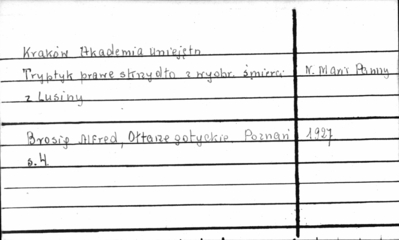 Kraków Akademia Umiejętn
Tryptyk prawe skrzydło z wyobr. śmierci N. Marii Panny
z Lusiny
Brosig Alfred, Ołtarze gotyckie. Poznań 1927
s. 4